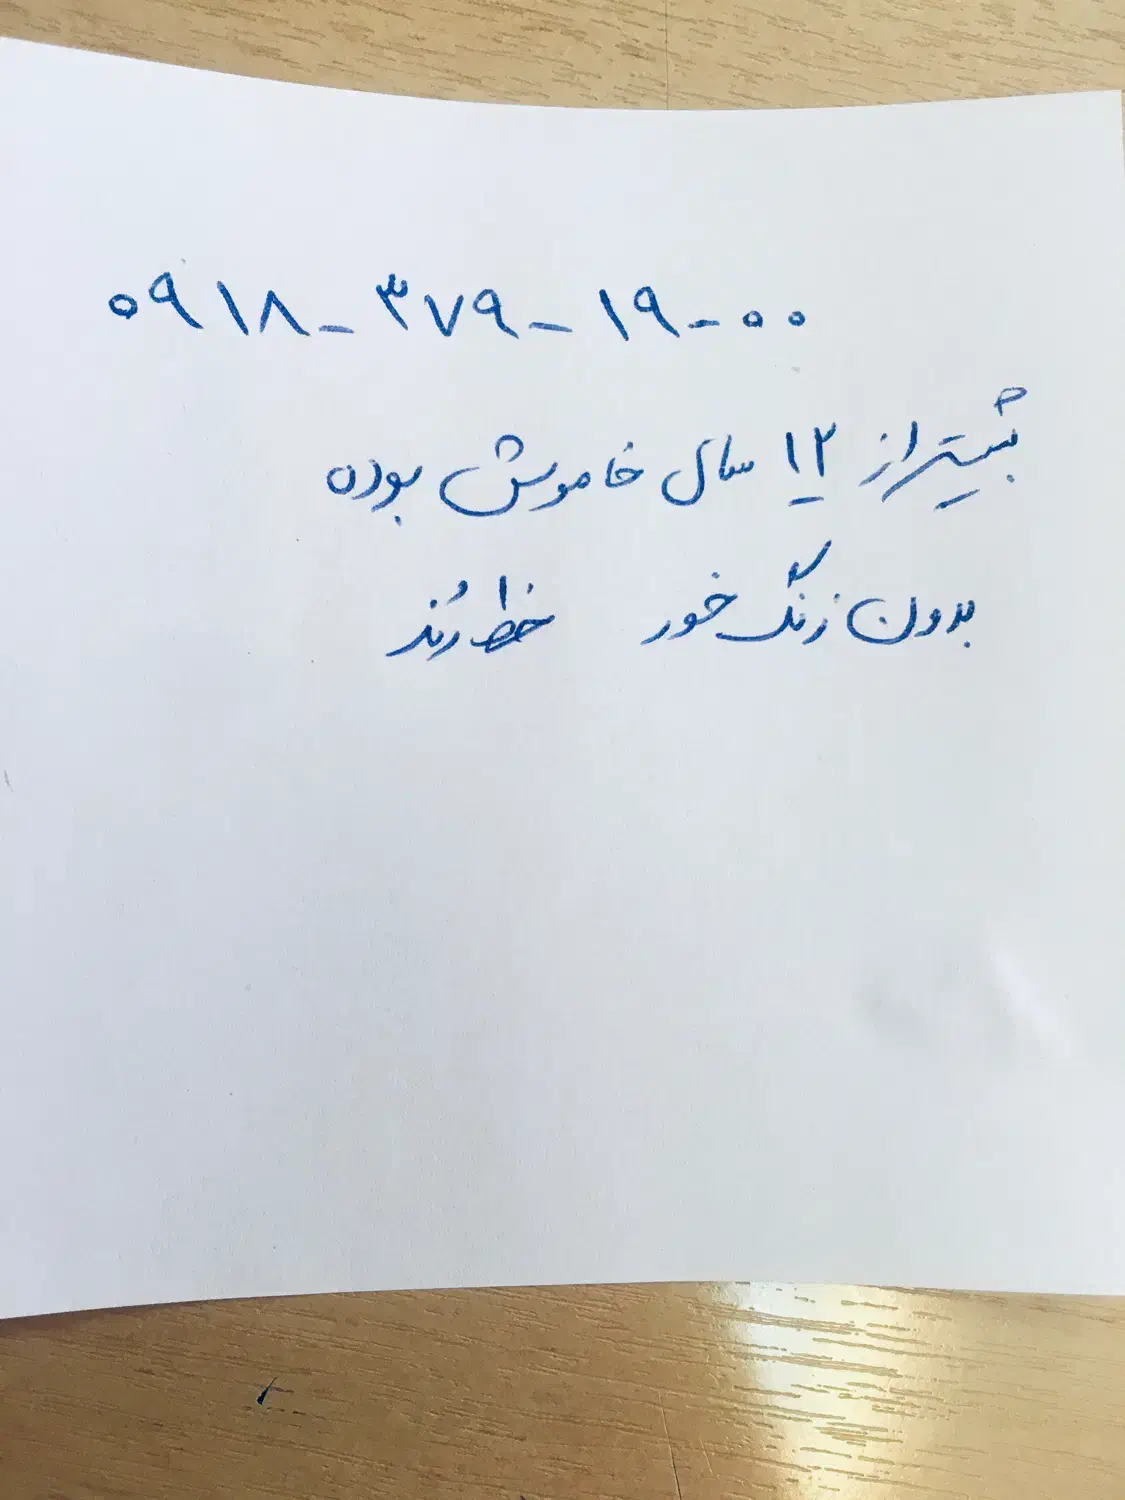 ۰۹۱۸-۳۷۹-۱۹-۰۰
بیشتر از ۱۲ سال خاموش بوده
بدون زنگ خور خط رُند